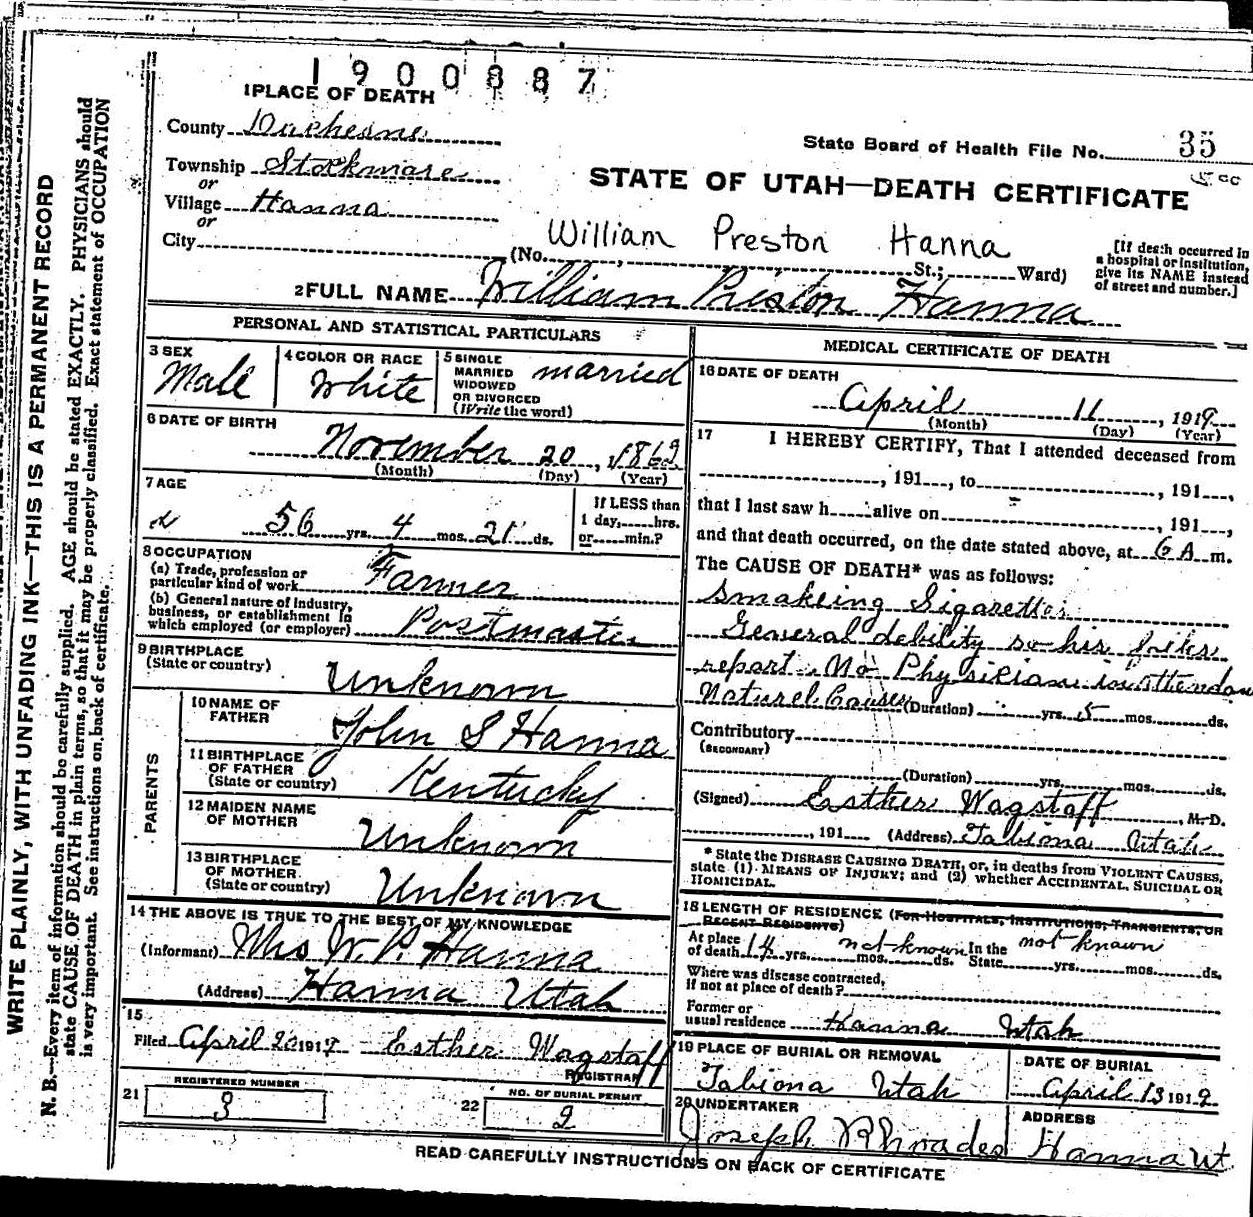 1900887
1 PLACE OF DEATH
County Duchesne
State Board of Health File No. 35
Township Stockmore
or
STATE OF UTAH—DEATH CERTIFICATE
Village Hanna
or
City
William Preston Hanna
(No. St.; Ward)
[If death occurred in
a hospital or institution,
give its NAME instead
of street and number.]
2 FULL NAME William Preston Hanna
PERSONAL AND STATISTICAL PARTICULARS
3 SEX
Male
4 COLOR OR RACE
White
5 SINGLE
MARRIED
WIDOWED
OR DIVORCED
(Write the word)
married
6 DATE OF BIRTH
November 20, 1862
(Month) (Day) (Year)
7 AGE
56 yrs. 4 mos. 21 ds.
If LESS than
1 day, hrs.
or min.?
8 OCCUPATION
(a) Trade, profession or
particular kind of work Farmer
(b) General nature of industry,
business, or establishment in
which employed (or employer) Postmaster
9 BIRTHPLACE
(State or country) Unknown
PARENTS
10 NAME OF
FATHER John S Hanna
11 BIRTHPLACE
OF FATHER
(State or country) Kentucky
12 MAIDEN NAME
OF MOTHER Unknown
13 BIRTHPLACE
OF MOTHER
(State or country) Unknown
14 THE ABOVE IS TRUE TO THE BEST OF MY KNOWLEDGE
(Informant) Mrs W. P. Hanna
(Address) Hanna Utah
15
Filed April 20 1919 Esther Wagstaff
REGISTRAR
21 REGISTERED NUMBER
3
22 NO. OF BURIAL PERMIT
2
MEDICAL CERTIFICATE OF DEATH
16 DATE OF DEATH
April 11, 1919
(Month) (Day) (Year)
17 I HEREBY CERTIFY, That I attended deceased from
, 191 , to , 191 ,
that I last saw h alive on , 191 ,
and that death occurred, on the date stated above, at 6 A m.
The CAUSE OF DEATH* was as follows:
Smakeing Sigarettes
General debility so his folks
report. No Physician in attendan
Naturel Causes (Duration) yrs. 5 mos. ds.
Contributory
(SECONDARY)
(Duration) yrs. mos. ds.
(Signed) Esther Wagstaff, M.D.
, 191 (Address) Tabiona Utah
* State the DISEASE CAUSING DEATH, or, in deaths from VIOLENT CAUSES,
state (1) MEANS OF INJURY; and (2) whether ACCIDENTAL, SUICIDAL OR
HOMICIDAL.
18 LENGTH OF RESIDENCE (FOR HOSPITALS, INSTITUTIONS, TRANSIENTS, OR
RECENT RESIDENTS)
At place
of death 14 yrs. not known mos. ds. In the
State not known yrs. mos. ds.
Where was disease contracted,
if not at place of death?
Former or
usual residence Hanna Utah
19 PLACE OF BURIAL OR REMOVAL
Tabiona Utah
DATE OF BURIAL
April 13 1919
20 UNDERTAKER
Joseph Rhoades
ADDRESS
Hanna Ut
READ CAREFULLY INSTRUCTIONS ON BACK OF CERTIFICATE
WRITE PLAINLY, WITH UNFADING INK—THIS IS A PERMANENT RECORD
N. B.—Every item of information should be carefully supplied. AGE should be stated EXACTLY. PHYSICIANS should
state CAUSE OF DEATH in plain terms, so that it may be properly classified. Exact statement of OCCUPATION
is very important. See instructions on back of certificate.